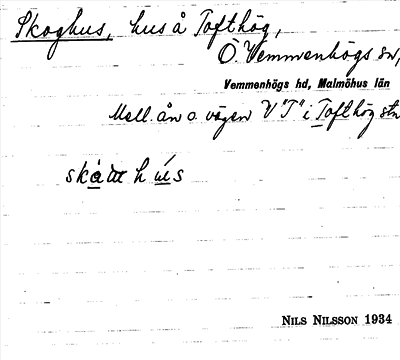 Skoghus, hus å Tofthög,
Ö. Vemmenhögs sn,
Vemmenhögs hd, Malmöhus län
Mell. ån o. vägen V "T" i Tofthög stn
NILS NILSSON 1934